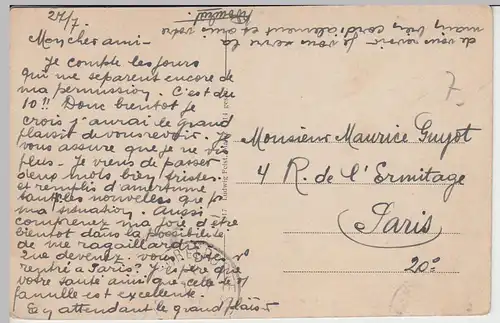 24/7.
Mon cher ami -
Je compte les jours
qui me separent encore de
ma permission. C'est du
10!! Donc bientot je
crois j'aurai le grand
plaisir de vous revoir. Je
vous assure que je ne vis
plus - Je viens de passer
deux mois bien tristes
et remplis d'amertume
tant les nouvelles que
ma situation. Aussi
comprenez ma joie d'être
bientot dans la possibilité
de me ragaillardir.
Que devenez-vous. Etes
rentré a Paris? J'espère que
votre santé ainsi que celle de
famille est excellente.
En attendant le grand plaisir
de vous revoir je vous serre la
main bien cordialement et suis votre
Monsieur Maurice Guyot
4 R. de l'Ermitage
Paris
20e
7.
Ludwig Feist,